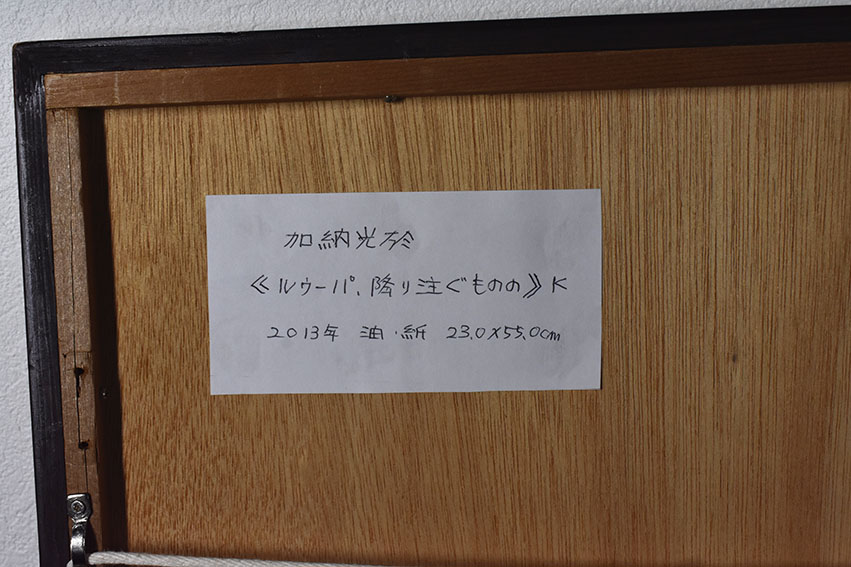 加納光於
《ルゥーパ、降り注ぐものの》K
2013年 油・紙 23.0×55.0cm